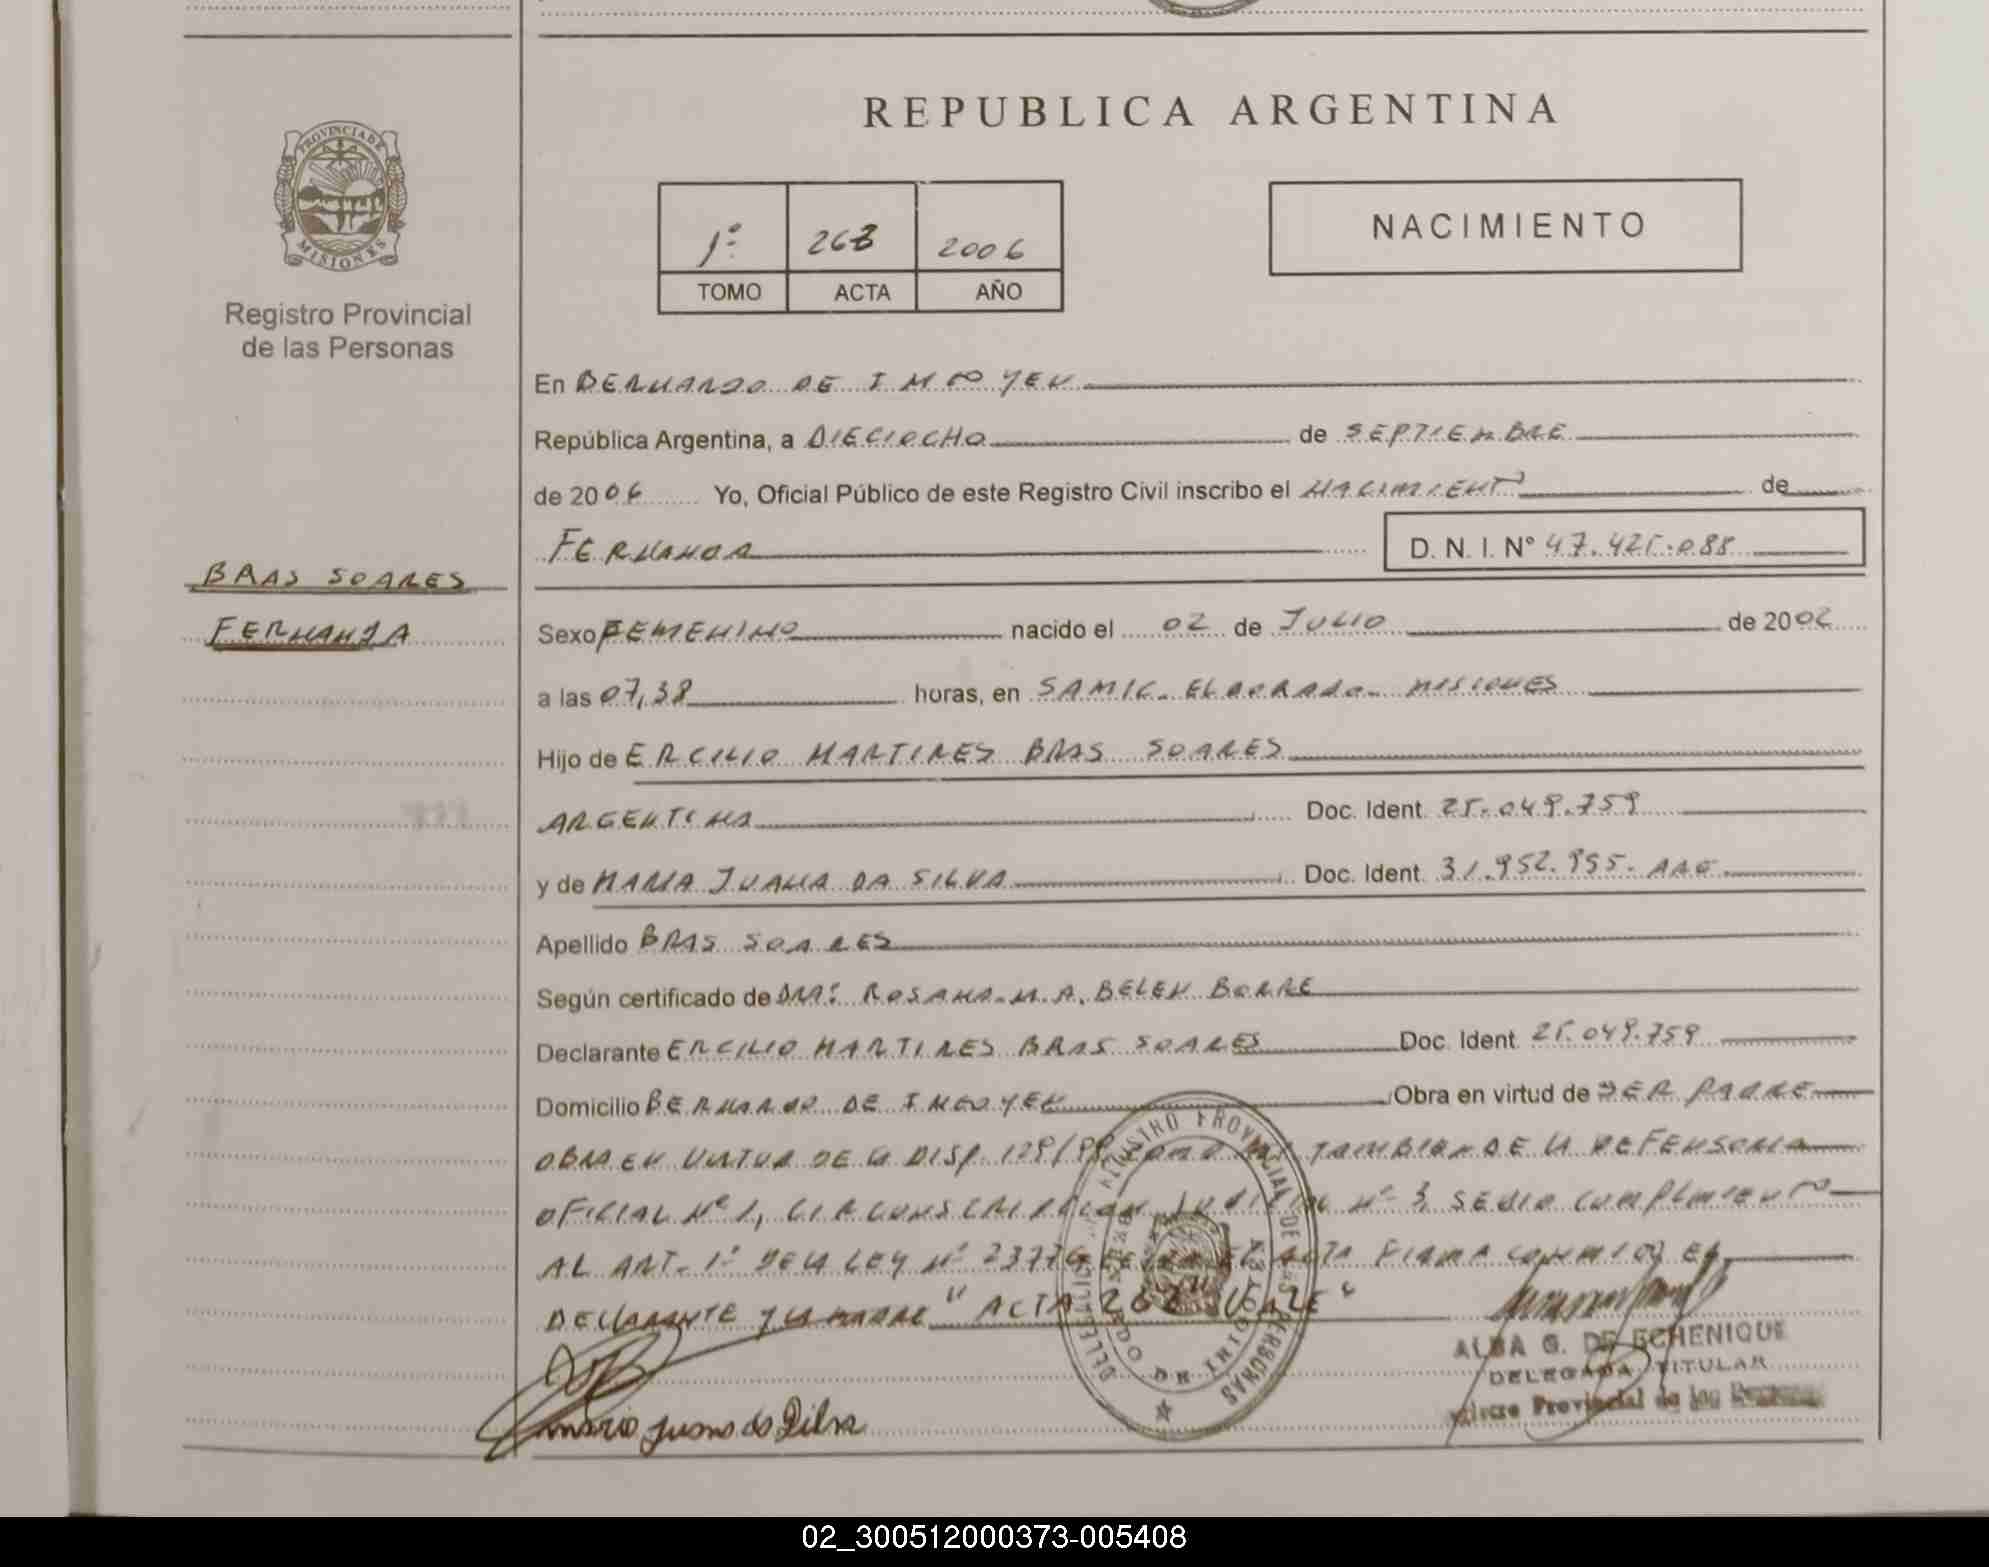 REPUBLICA ARGENTINA
PROVINCIA DE
MISIONES
Registro Provincial
de las Personas
1º 2006
TOMO ACTA AÑO
NACIMIENTO
En BERNARDO DE IRIGOYEN
República Argentina, a DIECIOCHO de SEPTIEMBRE
de 2006 Yo, Oficial Público de este Registro Civil inscribo el NACIMIENTO de
FERNANDA D. N. I. Nº 47.425.088
BRAS SOARES
FERNANDA
Sexo FEMENINO nacido el 02 de JULIO de 2002
a las 07,38 horas, en SAMIC. ELDORADO. MISIONES
Hijo de ERCILIO MARTIRES BRAS SOARES
ARGENTINA Doc. Ident. 25.049.759
y de MARIA JUANA DA SILVA Doc. Ident. 31.952.955. ARG
Apellido BRAS SOARES
Según certificado de DRA: ROSANA. M. A. BELEN BORRE
Declarante ERCILIO MARTIRES BRAS SOARES Doc. Ident. 25.049.759
Domicilio BERNARDO DE IRIGOYEN Obra en virtud de SER PADRE
OBRA EN VIRTUD DE LA DISP. TAMBIEN DE LA DEFENSORIA
OFICIAL Nº 1, CIRCUNSCRIPCION JUDICIAL Nº 3, SE DIO CUMPLIMIENTO
AL ART. 1º DE LA LEY Nº ACTA FIRMA CONMIGO EL
DECLARANTE Y LA MADRE " ACTA VALE "
DELEGACION REGISTRO PROVINCIAL DE LAS PERSONAS
BERNARDO DE IRIGOYEN
Maria Juana da Silva
ALBA G. DE ECHENIQUE
DELEGADA TITULAR
Provincial de las Personas
02_300512000373-005408